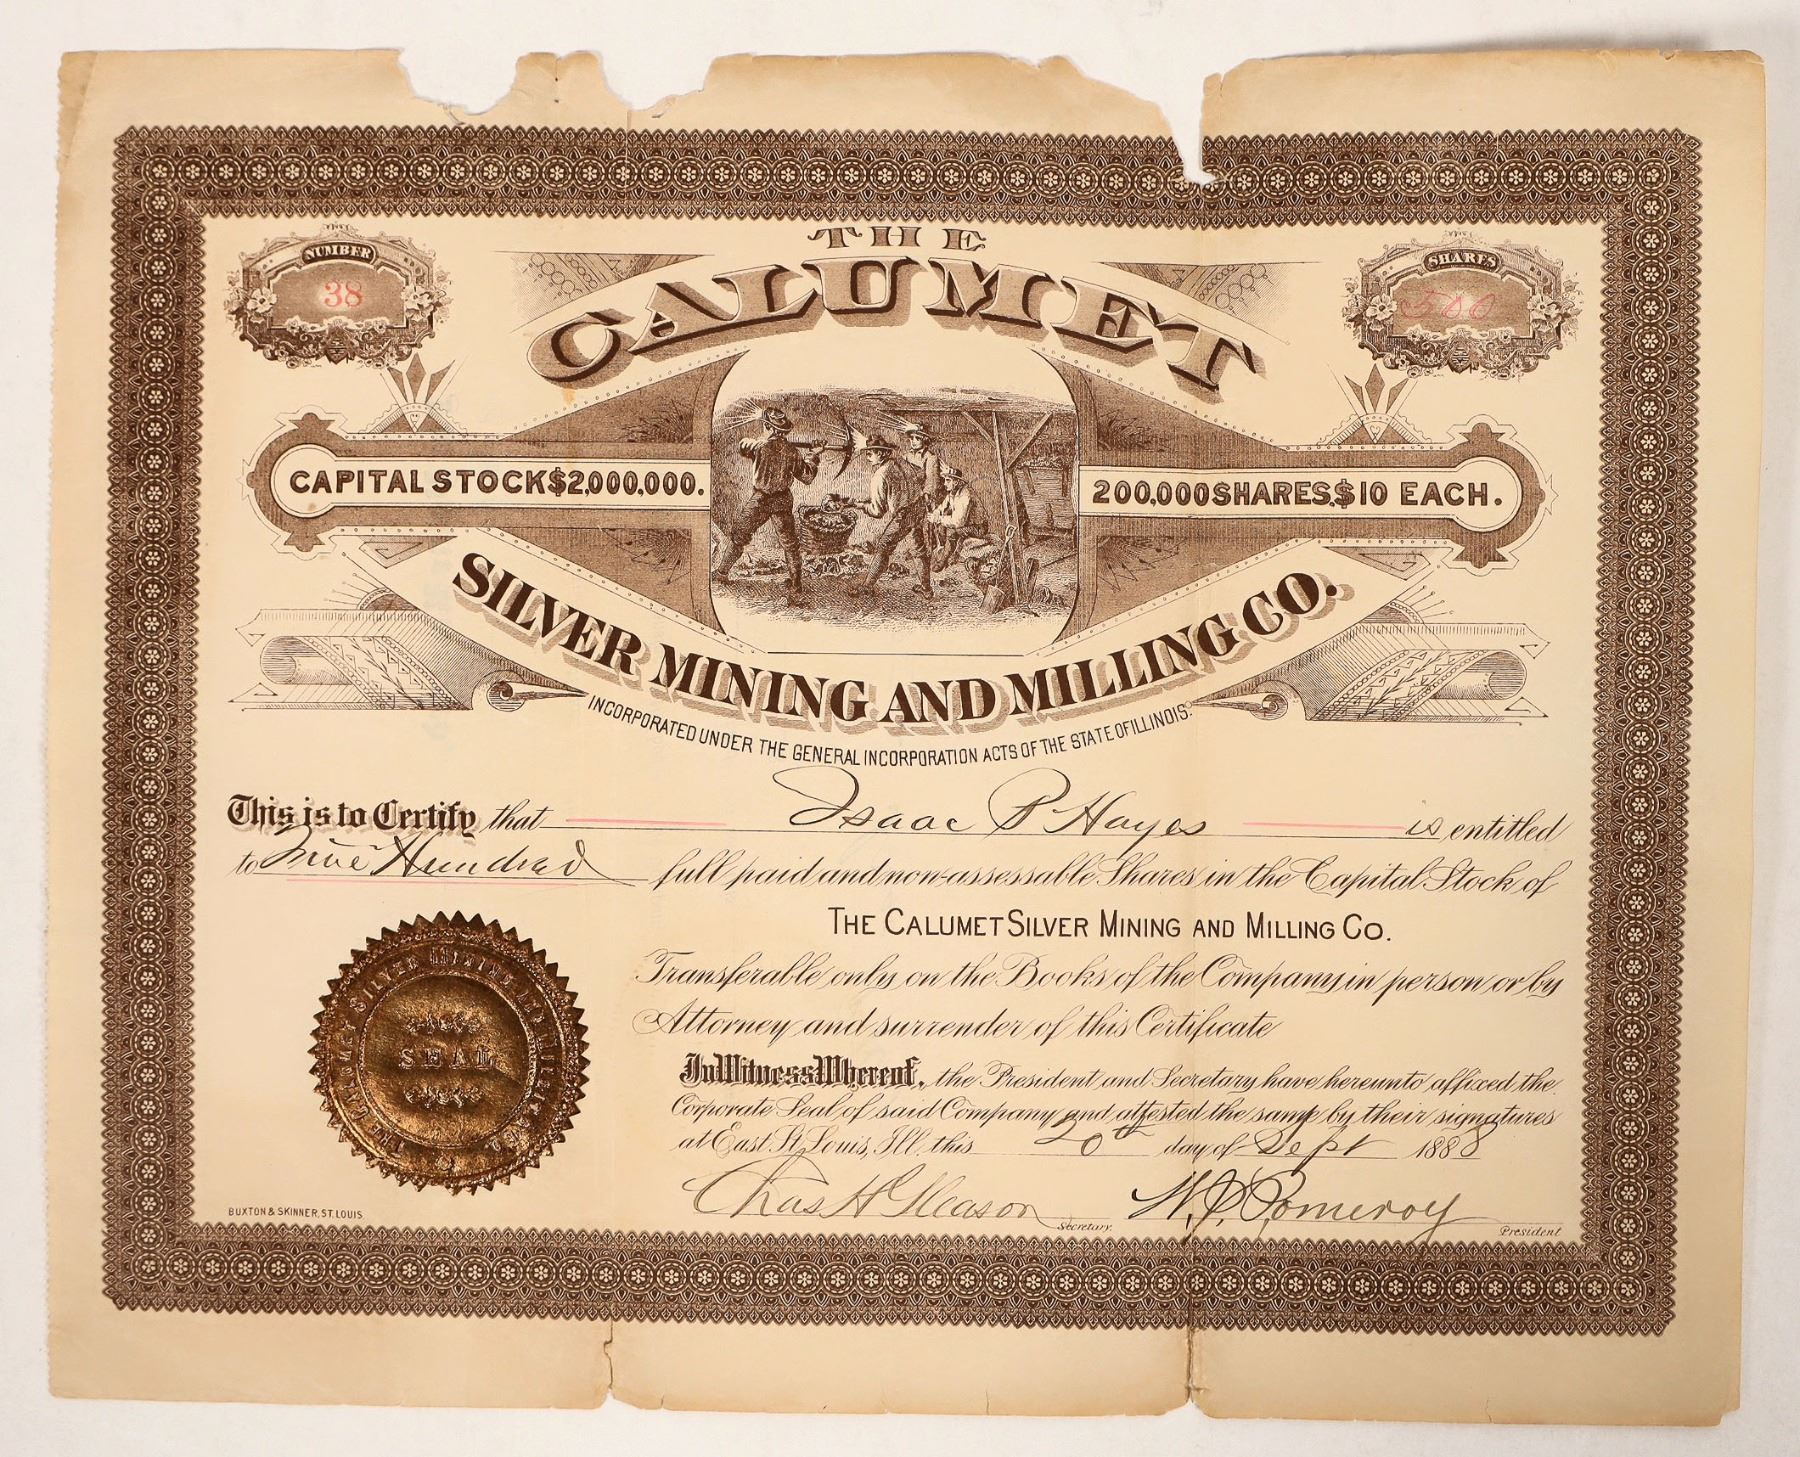 NUMBER
38
SHARES
500
THE
CALUMET
CAPITAL STOCK $2,000,000.
200,000 SHARES, $10 EACH.
SILVER MINING AND MILLING CO.
INCORPORATED UNDER THE GENERAL INCORPORATION ACTS OF THE STATE OF ILLINOIS.
This is to Certify that Isaac P Hayes is entitled
to Five Hundred full paid and non-assessable Shares in the Capital Stock of
THE CALUMET SILVER MINING AND MILLING CO.
Transferable only on the Books of the Company in person or by
Attorney and surrender of this Certificate
In Witness Whereof, the President and Secretary have hereunto affixed the
Corporate Seal of said Company and attested the same by their signatures
at East St. Louis, Ill, this 20th day of Sept 1888
Chas H Gleason Secretary. W. P. Pomeroy President
THE CALUMET SILVER MINING AND MILLING CO.
SEAL
BUXTON & SKINNER, ST. LOUIS